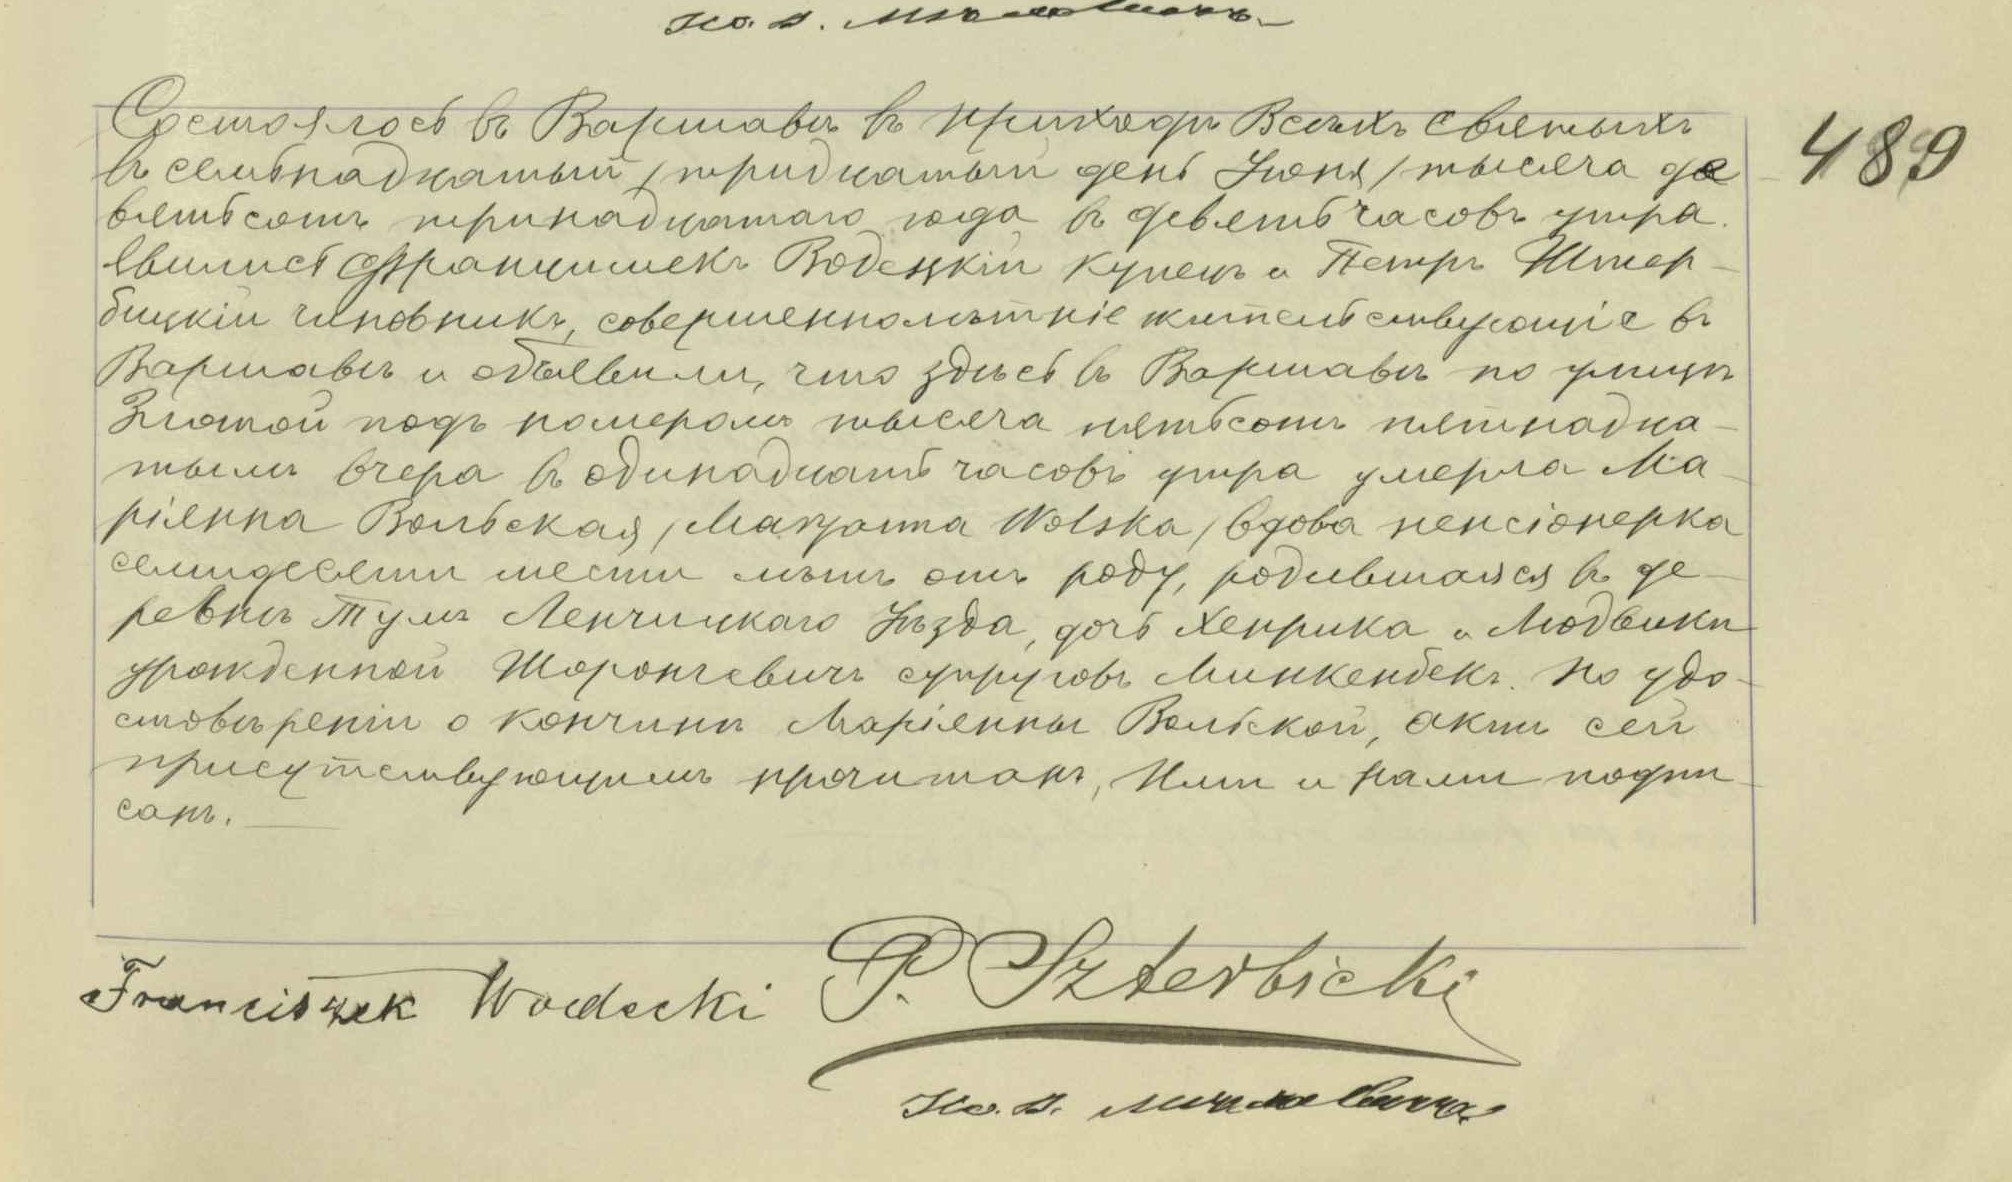 Состоялось въ Варшавѣ въ приходѣ Всѣхъ Святыхъ
489
въ семьнадцатый /тридцатый день Iюня/ тысяча де
вятьсотъ тринадцатаго года въ девять часовъ утра.
Явились Францишекъ Водецкiй купецъ и Петръ Штер-
бицкiй чиновникъ, совершеннолѣтнiе жительствующiе въ
Варшавѣ и объявили, что здѣсь въ Варшавѣ по улицѣ
Златой подъ номеромъ тысяча пятьсотъ пятнадца-
тымъ вчера въ одинадцать часовъ утра умерла Ма-
рiянна Вольская, /Maryanna Wolska/ вдова пенсiонерка
семидесяти шести лѣтъ отъ роду, родившаяся въ де-
ревнѣ Тумъ Ленчицкаго Уѣзда, дочь Хенрика и Людвики
урожденной Шоронгевичъ супруговъ Минкенбекъ. По удо-
стовѣренiи о кончинѣ Марiянны Вольской, актъ сей
присутствующимъ прочитанъ, Ими и Нами подпи-
санъ.
Franciszek Wodecki P. Szterbicki